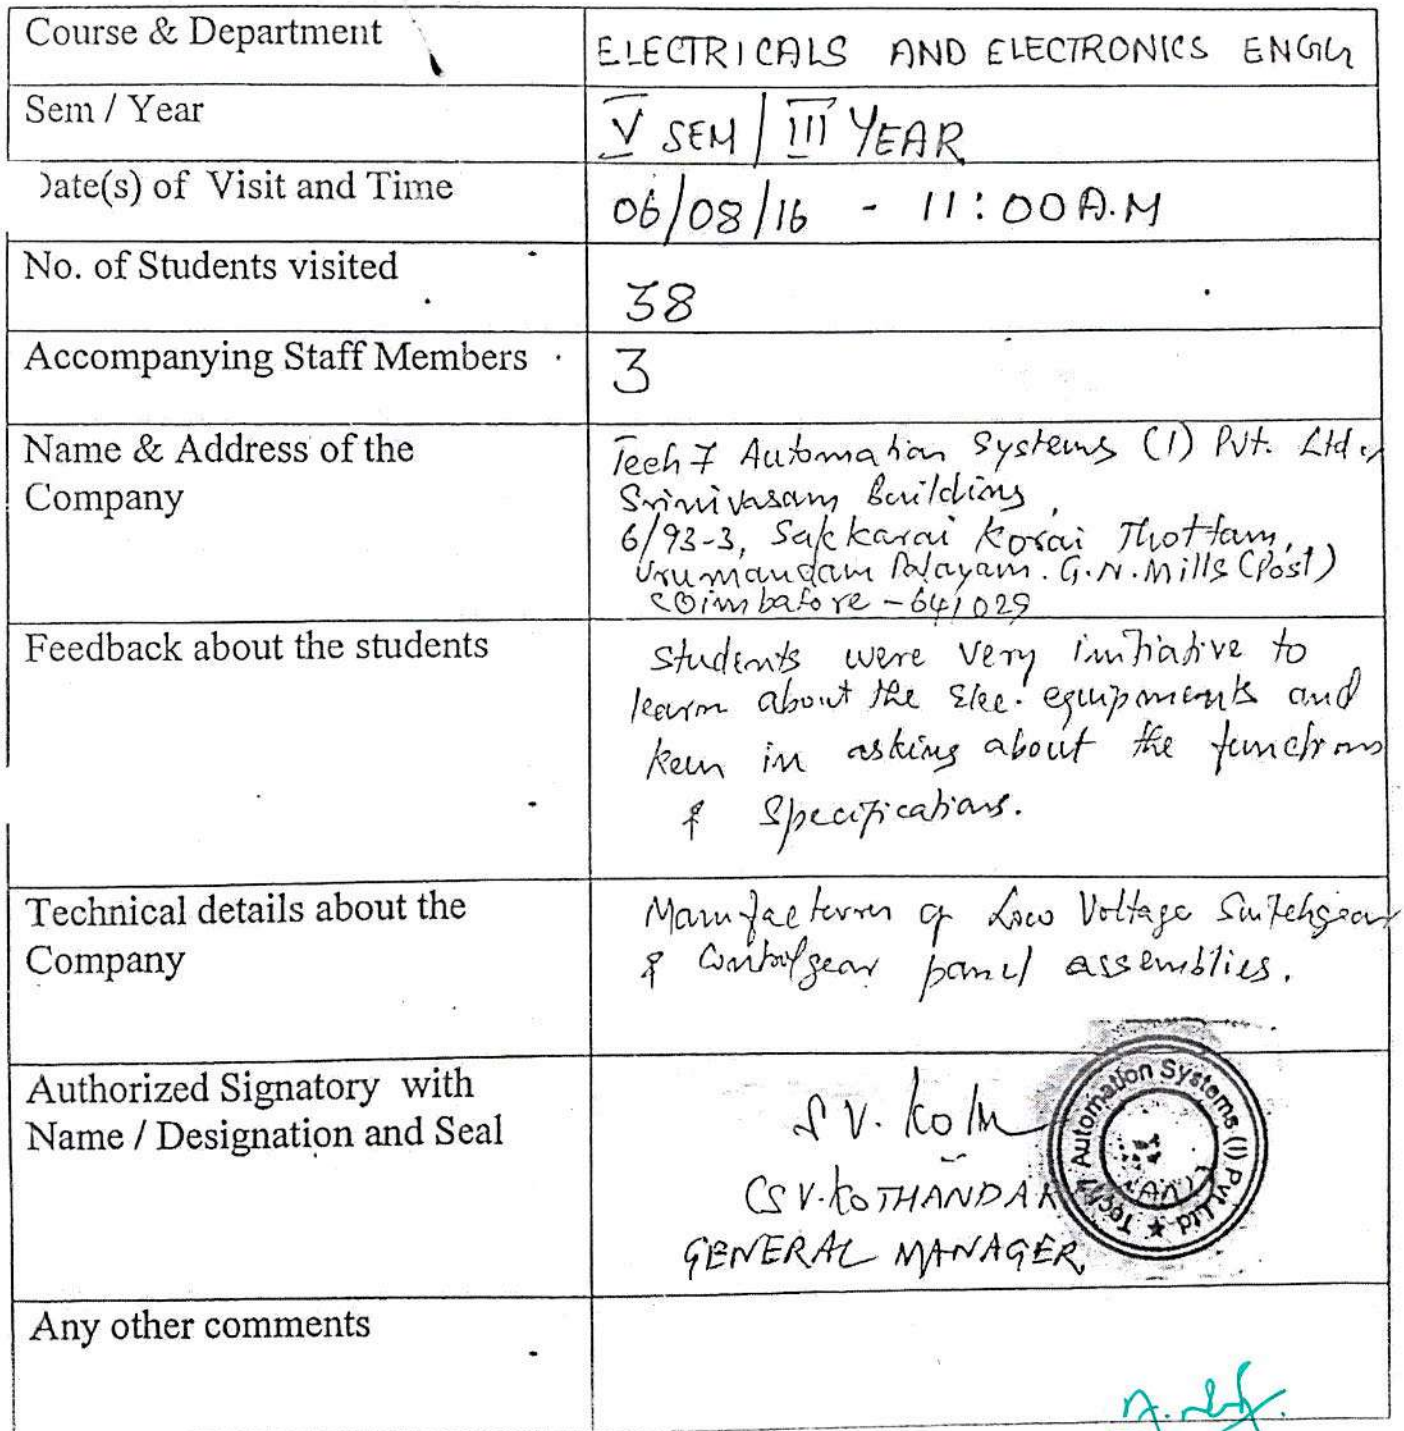 Course & Department
ELECTRICALS AND ELECTRONICS ENGG
Sem / Year
V SEM / III YEAR
Date(s) of Visit and Time
06/08/16 - 11:00 A.M
No. of Students visited
38
Accompanying Staff Members
3
Name & Address of the
Company
Tech 7 Automation Systems (I) Pvt. Ltd.,
Srinivasam Building,
6/93-3, Sakkarai Korai Thottam,
Urumandam Palayam. G.N. Mills (Post)
Coimbatore - 641029
Feedback about the students
Students were very initiative to
learn about the Elec. equipments and
keen in asking about the functions
& Specifications.
Technical details about the
Company
Manufacturer of Low Voltage Switchgear
& Controlgear panel assemblies.
Authorized Signatory with
Name / Designation and Seal
S V. 
(S V. KOTHANDA
GENERAL MANAGER
Tech 7 Automation Systems (I) Pvt Ltd ★
Any other comments